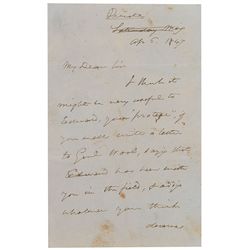 Private
Saturday May
My Dear Sir
I think it
might be very useful to
Edward, your protege, if
you would write a letter
to Genl Wool, says that
Edward has been with
you in the field, & adds
whatever you think